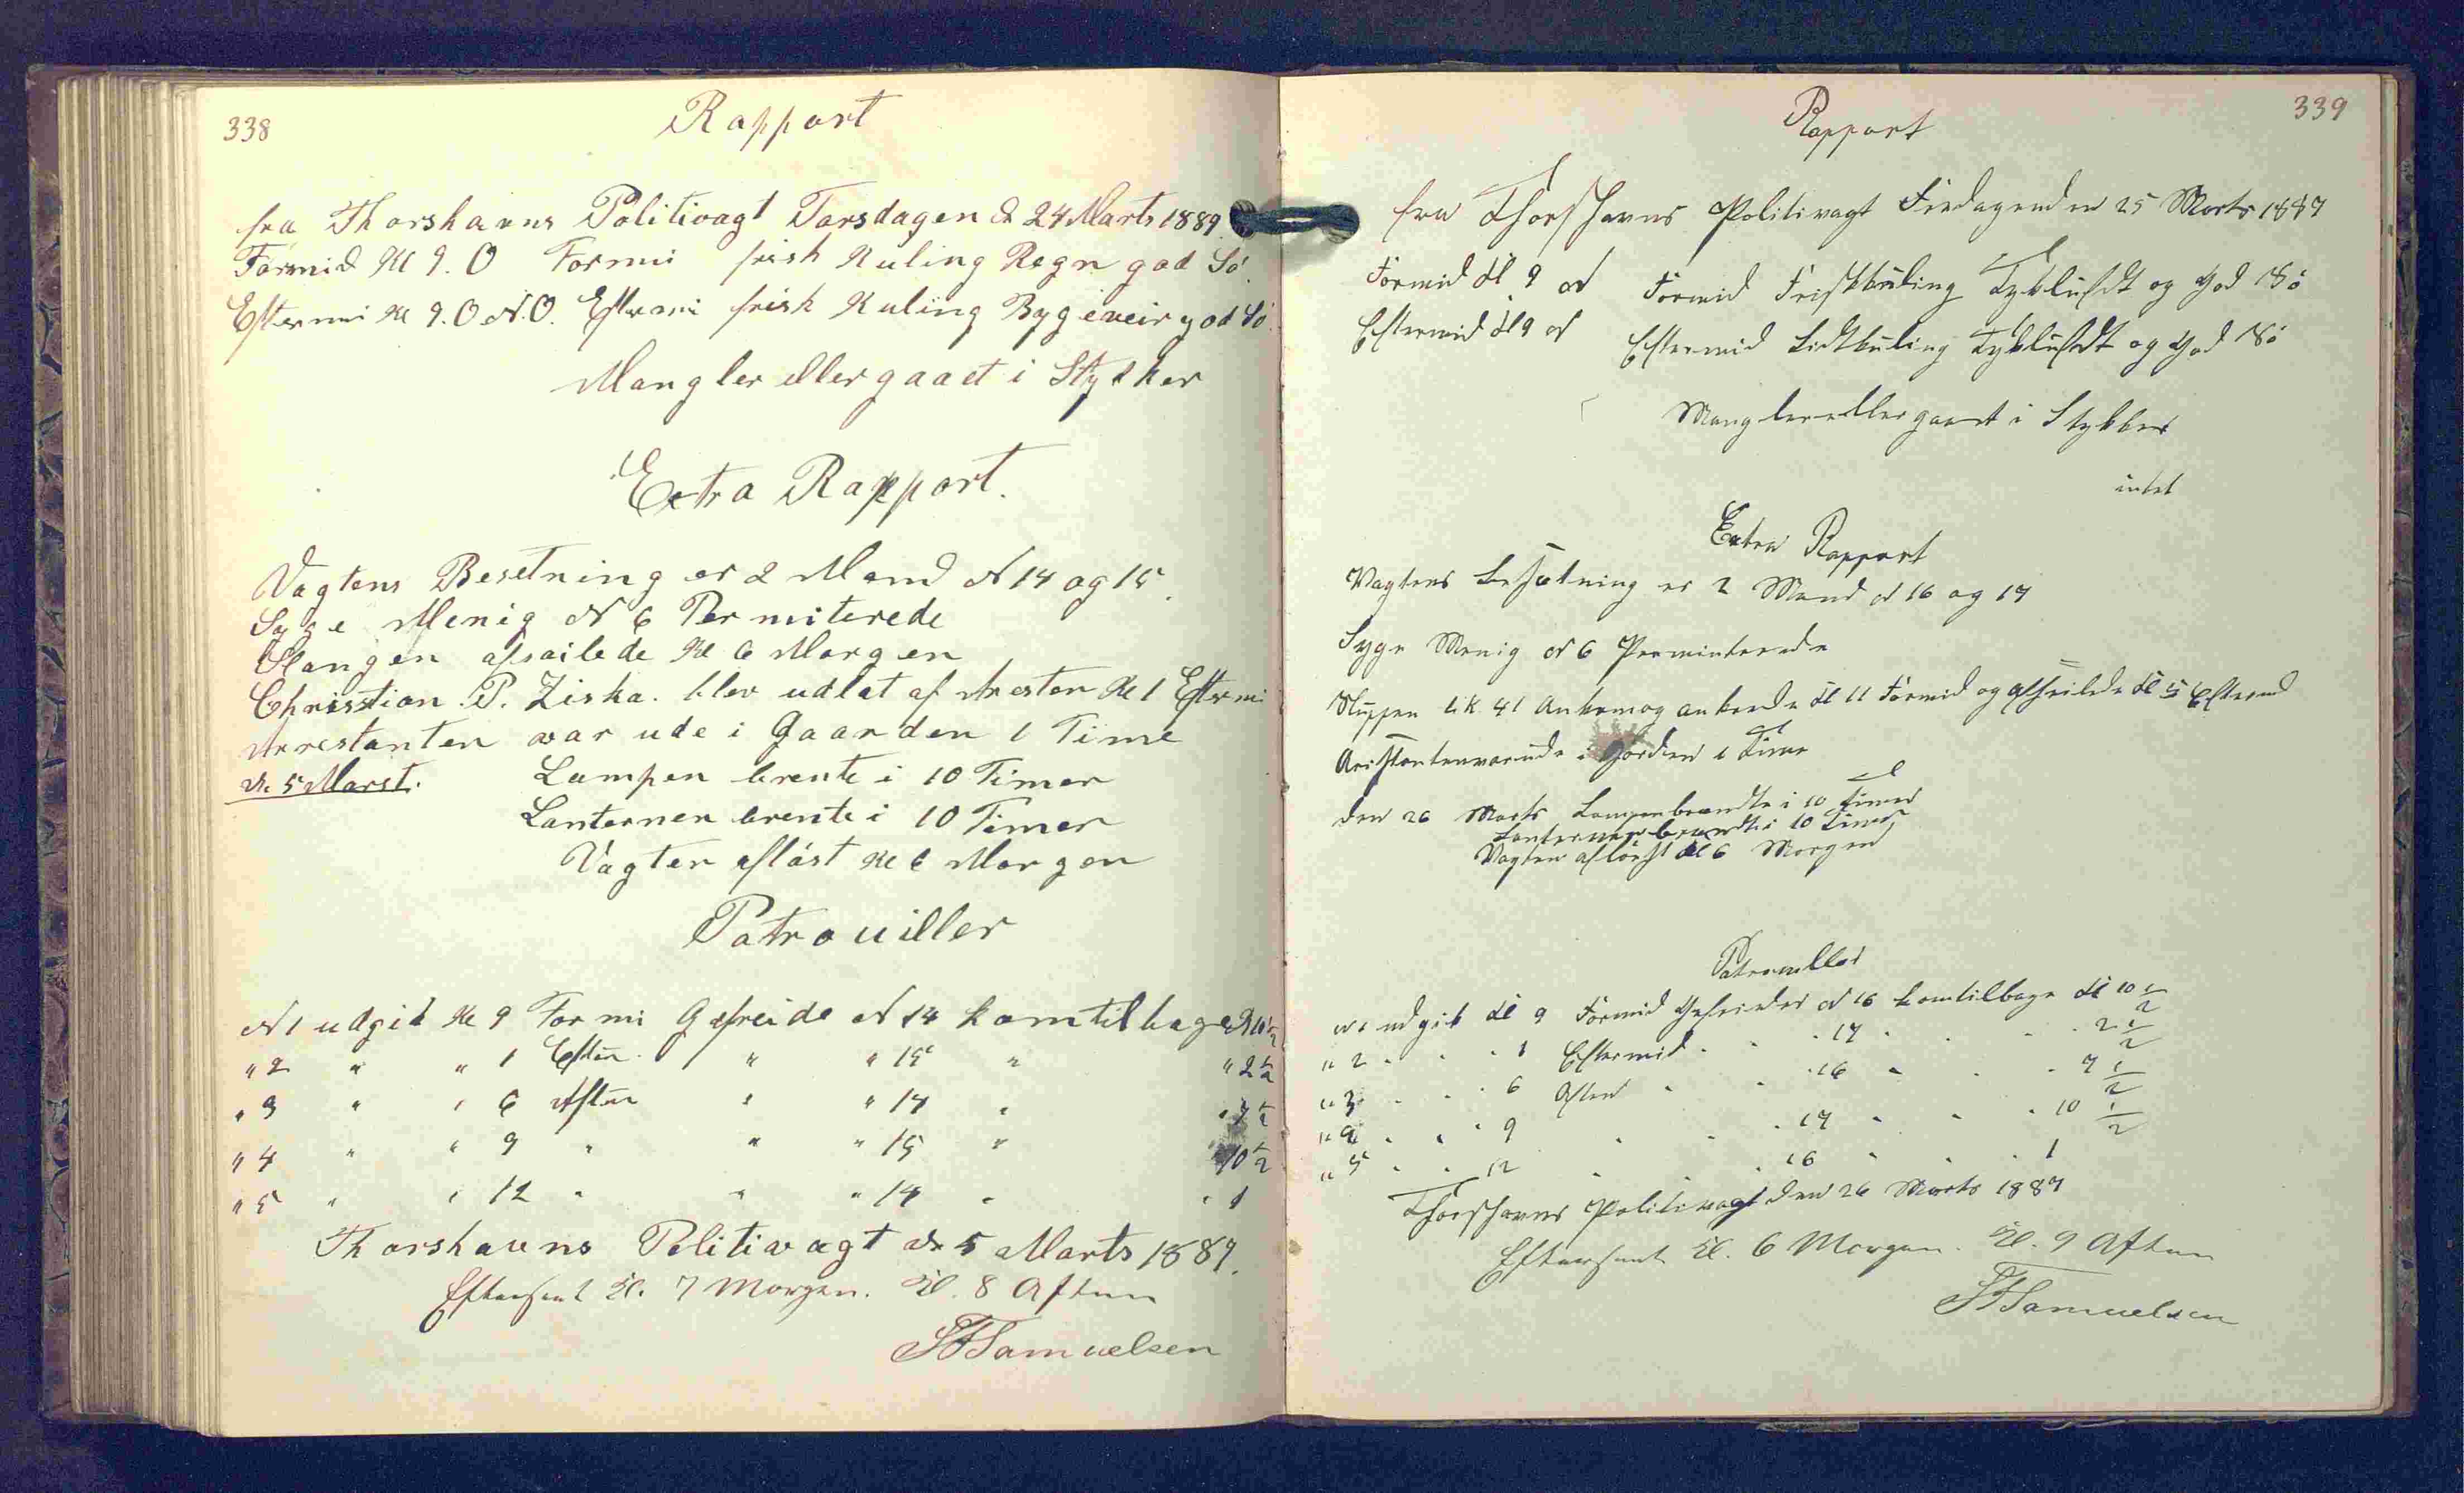 338
Rapport
fra Thorshavns Politivagt Torsdagen d 24 Marts 1887
Formid Kl 9. O Formi frisk Kuling Regn god Sö.
Eftermi Kl 9. O N. O. Eftermi frisk Kuling Bygeveir god Sö.
Mangler eller gaaet i Stykker
Extra Rapport.
Vagtens Besetning er 2 Mand N 14 og 15.
Syge Menig N 6 Permiterede
afsailede Kl 6 Morgen
Chrisstion. P. Ziska. blev udlat af Aresten Kl 1 Eftermi
Arrestanten war ude i Gaarden 1 Time
5 Marst. Lampen brente i 10 Timer
Lanternen brente i 10 Timer
Vagten aflöst Kl 6 Morgen
Patrouiller
N 1 udgik Kl 9 Formi Gefreide N 14 kom tilbage Kl 10 1/2
" 2 " " 1 Efter. " " 15 " " 2 1/2
" 3 " " 6 Aften " " 14 " " 7 1/2
" 4 " " 9 " " " 15 " " 10 1/2
" 5 " " 12 " " " 14 " " 1
Thorshavns Politivagt d. 5 Marts 1887.
Efterseet Kl. 7 Morgen. Kl. 8 Aften
Samuelsen
339
Rapport
fra Thorshavns Politivagt Fredagen den 25 Marts 1887
Formid Kl 9 N Formid Friskkuling Tyklufdt og God Sö
Eftermid Kl 9 N Eftermid Lidtkuling Tyklufdt og God Sö
Mangler eller gaaet i Stykker
intet
Extra Rapport
Vagtens Besætning er 2 Mand N 16 og 17
Syge Menig N 6 Perminterede
Sluppen LK 41 Ankom og ankrede Kl 11 Formid og afseilede Kl 5 Eftermd
Aristanten var ude i Gorden 1 Time
den 26 Marts Lampen brændte i 10 Timer
Lanternen brændte i 10 Timer
Vagten aflöest Kl 6 Morgen
Patrouller
N 1 udgik Kl 9 Formid Gefreider N 16 kom tilbage Kl 10 1/2
" 2 " " 1 Eftermid " " 17 " " 2 1/2
" 3 " " 6 Aften " " 16 " " 7 1/2
" 4 " " 9 " " 17 " " 10 1/2
" 5 " " 12 " " 16 " " 1
Thorshavns Politivagt den 26 Marts 1887
Efterseet Kl. 6 Morgen. Kl. 9 Aften
Samuelsen